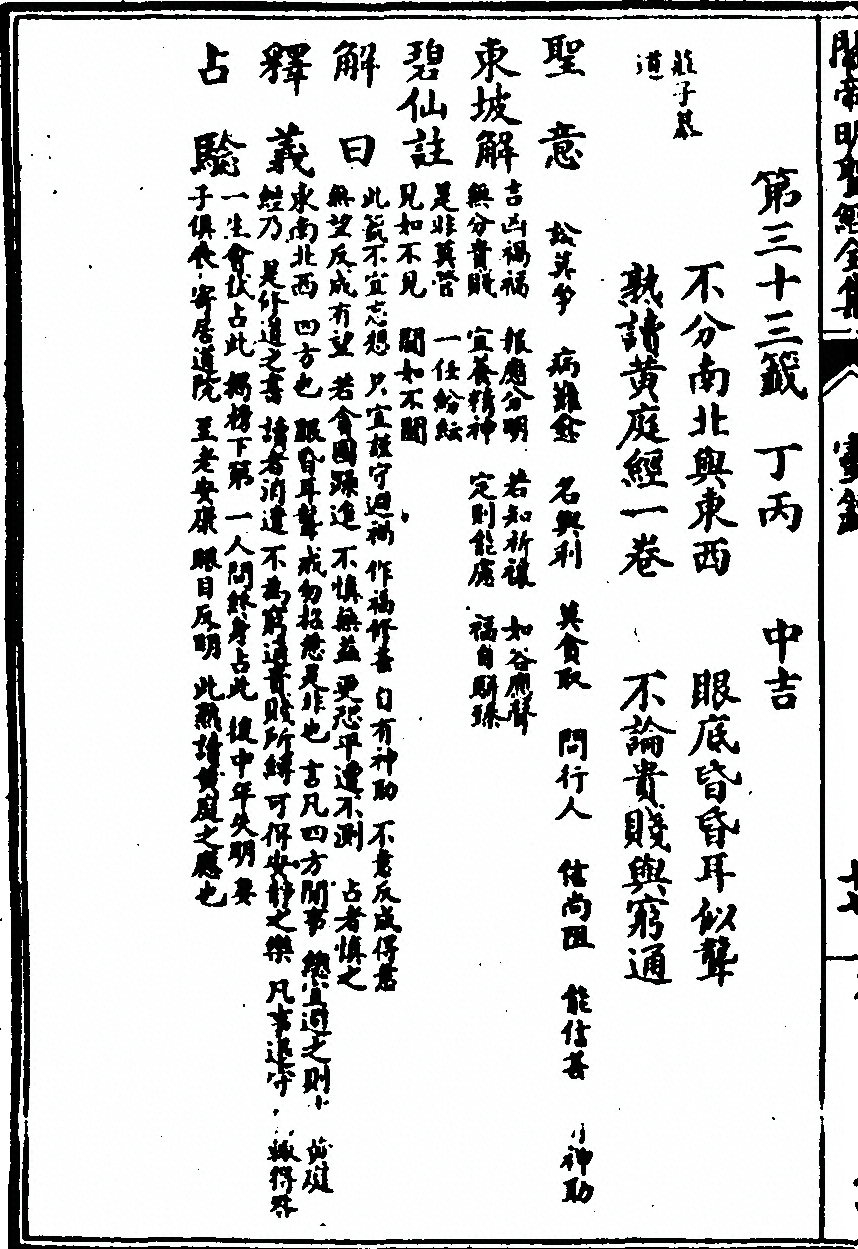 關帝明聖經全集
靈籤
第三十三籤 丁丙 中吉
不分南北與東西 眼底昏昏耳似聾
熟讀黃庭經一卷 不論貴賤與窮通
莊子慕
道
聖意 訟莫爭 病難愈 名與利 莫貪取 問行人 信尚阻 能信善 神助
東坡解 吉凶禍福 報應分明 若知祈禳 如谷應聲
無分貴賤 宜養精神 定則能慮 福自駢臻
碧仙註 是非莫管 一任紛紜
見如不見 聞如不聞
解曰 此籤不宜忘想 只宜謹守避禍 作福修善 自有神助 不意反成得意
無望反成有望 若貪圖躁進 不慎無益 更恐平遭不測 占者慎之
釋義 東南北西 四方也 眼昏耳聾 戒勿招惹是非也 言凡四方閒事 總宜避之則 黃庭
經乃 是修道之書 讀者消遣 不為窮通貴賤所縛 可保安靜之樂 凡事退守 得
占驗 一生會伏占此 揭榜下第 一人問終身占此 後中年失明 妻
子俱喪 寄居道院 至老安康 眼目反明 此熟讀黃庭之應也